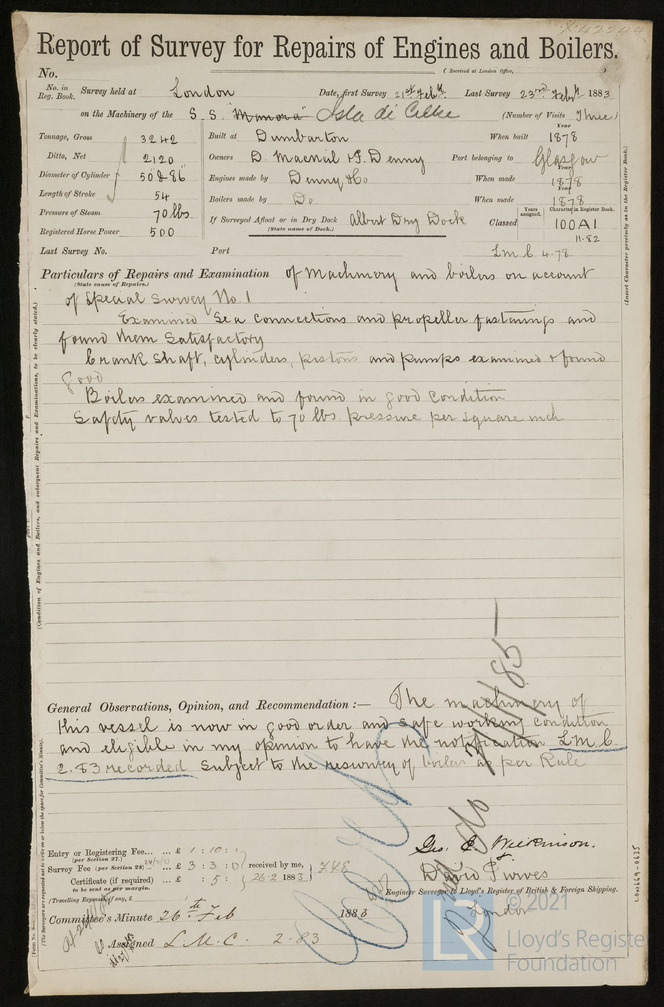 Report of Survey for Repairs of Engines and Boilers.
No. (Received at London Office, )
No. in Reg. Book. Survey held at London Date, first Survey 21st Feby Last Survey 23rd Feby 1883
on the Machinery of the S. S. "Manora" Isla de Cebu (Number of Visits Three)
Tonnage, Gross 3242 Built at Dumbarton When built Year 1878
Ditto, Net 2120 Owners D. Macneil & P. Denny Port belonging to Glasgow
Diameter of Cylinder 50 & 86" Engines made by Denny & Co When made Year 1878
Length of Stroke 54 Boilers made by Do When made Year 1878
Pressure of Steam 70 lbs. If Surveyed Afloat or in Dry Dock Albert Dry Dock Classed Years assigned. Character in Register Book. 100A1
(State name of Dock.) 11.82
Registered Horse Power 500
Last Survey No. Port L.M.C. 4.78
Particulars of Repairs and Examination of Machinery and boilers on account
(State cause of Repairs.)
of Special Survey No. 1
Examined Sea connections and propeller fastenings and
found them Satisfactory
Crank Shaft, cylinders, pistons and pumps examined & found
good
Boilers examined and found in good condition
Safety valves tested to 70 lbs pressure per square inch
General Observations, Opinion, and Recommendation:— The machinery of
this vessel is now in good order and safe working condition
and eligible in my opinion to have the notification L.M.C.
2.83 recorded Subject to the resurvey of boilers as per Rule
Entry or Registering Fee... ... £ 1 : 10 :
(per Section 27.)
Survey Fee (per Section 28) ... £ 3 : 3 : 0 received by me,
Certificate (if required) ... £ : 5 : 26.2 1883
to be sent as per margin.
(Travelling Expenses, if any, £ )
Geo. C. Wilkinson.
&
David Purves
Engineer Surveyor to Lloyd's Register of British & Foreign Shipping.
London
Committee's Minute 26th Feb 1883
Assigned L.M.C. 2.83
(Insert Character precisely as in the Register Book.)
LON669-0635
© 2021
LR
Lloyd's Registe
Foundation